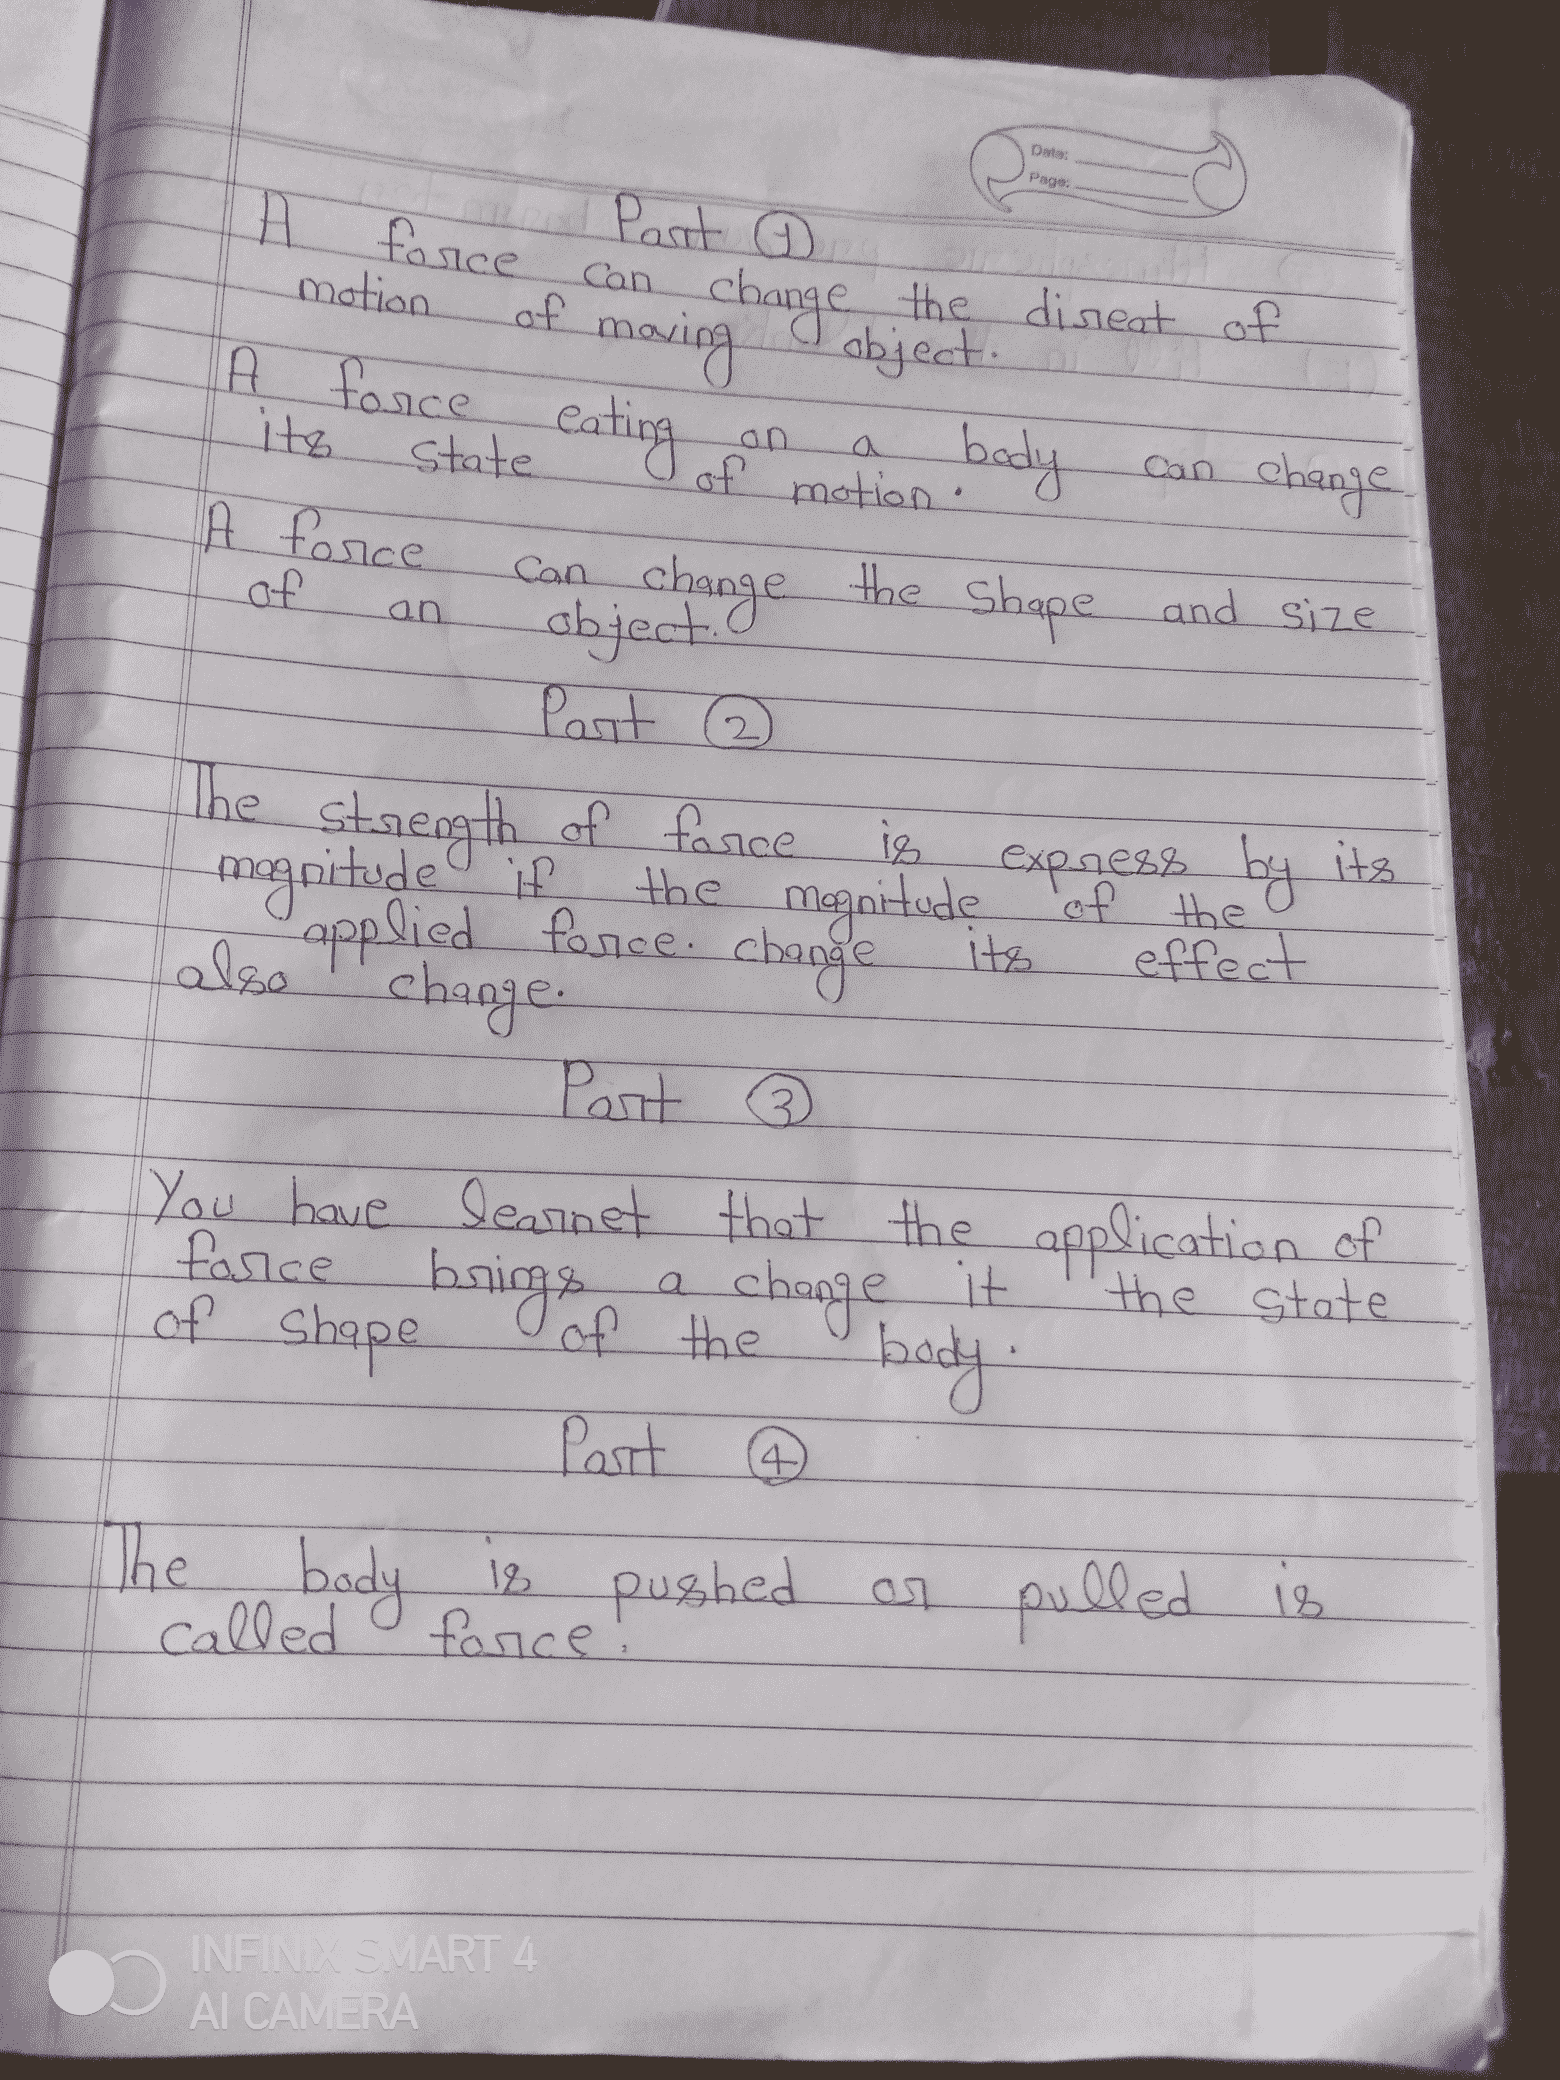 Date:
Page:
Part ①
A force can change the direct of
motion of moving object.
A force eating on a body can change
its state of motion.
A force can change the shape and size
of an object.
Part ②
The strength of force is express by its
magnitude if the magnitude of the
applied force. change its effect
also change.
Part ③
You have learnet that the application of
force brings a change it the state
of shape of the body.
Part ④
The body is pushed or pulled is
called force.
INFINIX SMART 4
AI CAMERA